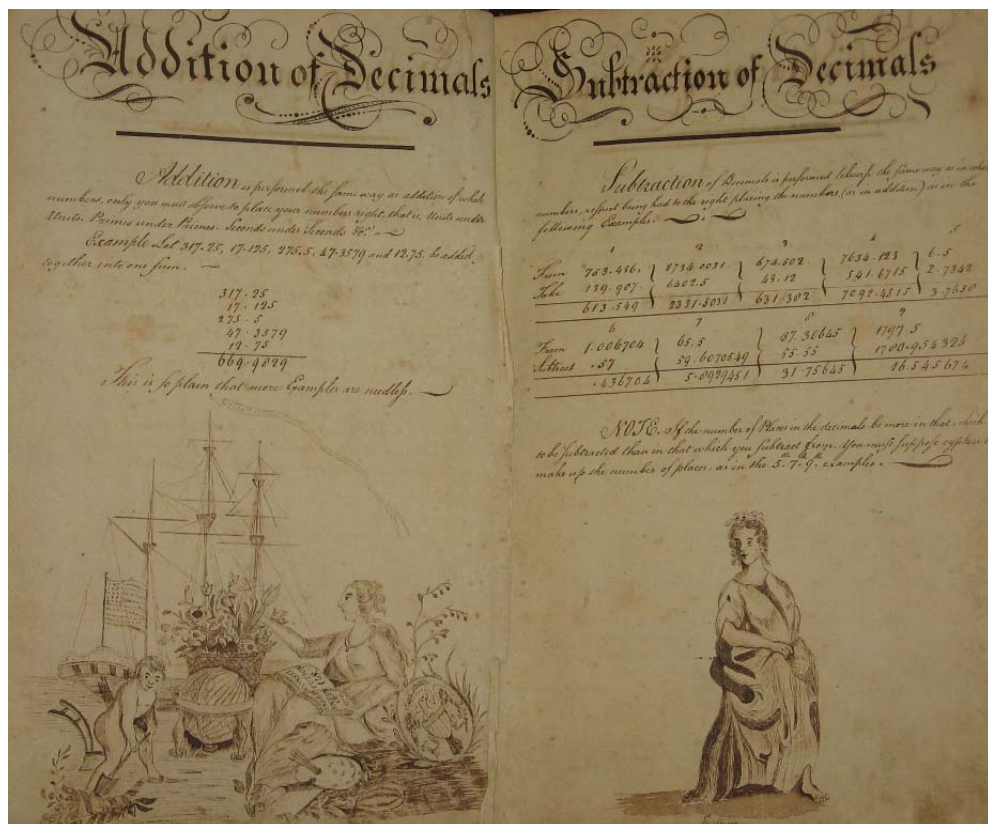 Addition of Decimals
Addition is performed the same way as addition of whole
numbers, only you must observe to place your numbers right, that is, Units under
Units, Primes under Primes, Seconds under Seconds &c.
Example Let 317.25, 17.125, 275.5, 47.3579 and 12.75. be added
together into one sum.
317.25
17.125
275.5
47.3579
12.75
669.9829
This is so plain that more Examples are needless.
Subtraction of Decimals
Subtraction of Decimals is performed likewise the same way as in whole
numbers, respect being had to the right placing the numbers (as in addition) as in the
following Examples.
1 2 3 4 5
From 753.456 8734.0031 674.502 7634.123 6.5
Take 139.907 6402.5 43.12 541.6715 2.7342
613.549 2331.5031 631.382 7092.4515 3.7658
6 7 8 9
From 1.006704 65.5 87.30645 1797.5
Subtract .57 59.6070549 55.55 1780.954326
.436704 5.8929451 31.75645 16.545674
NOTE. If the number of Places in the decimals be more in that which
to be Subtracted than in that which you Subtract from, You must suppose cyphers
make up the number of places, as in the 5.th 7.th 9.th examples.